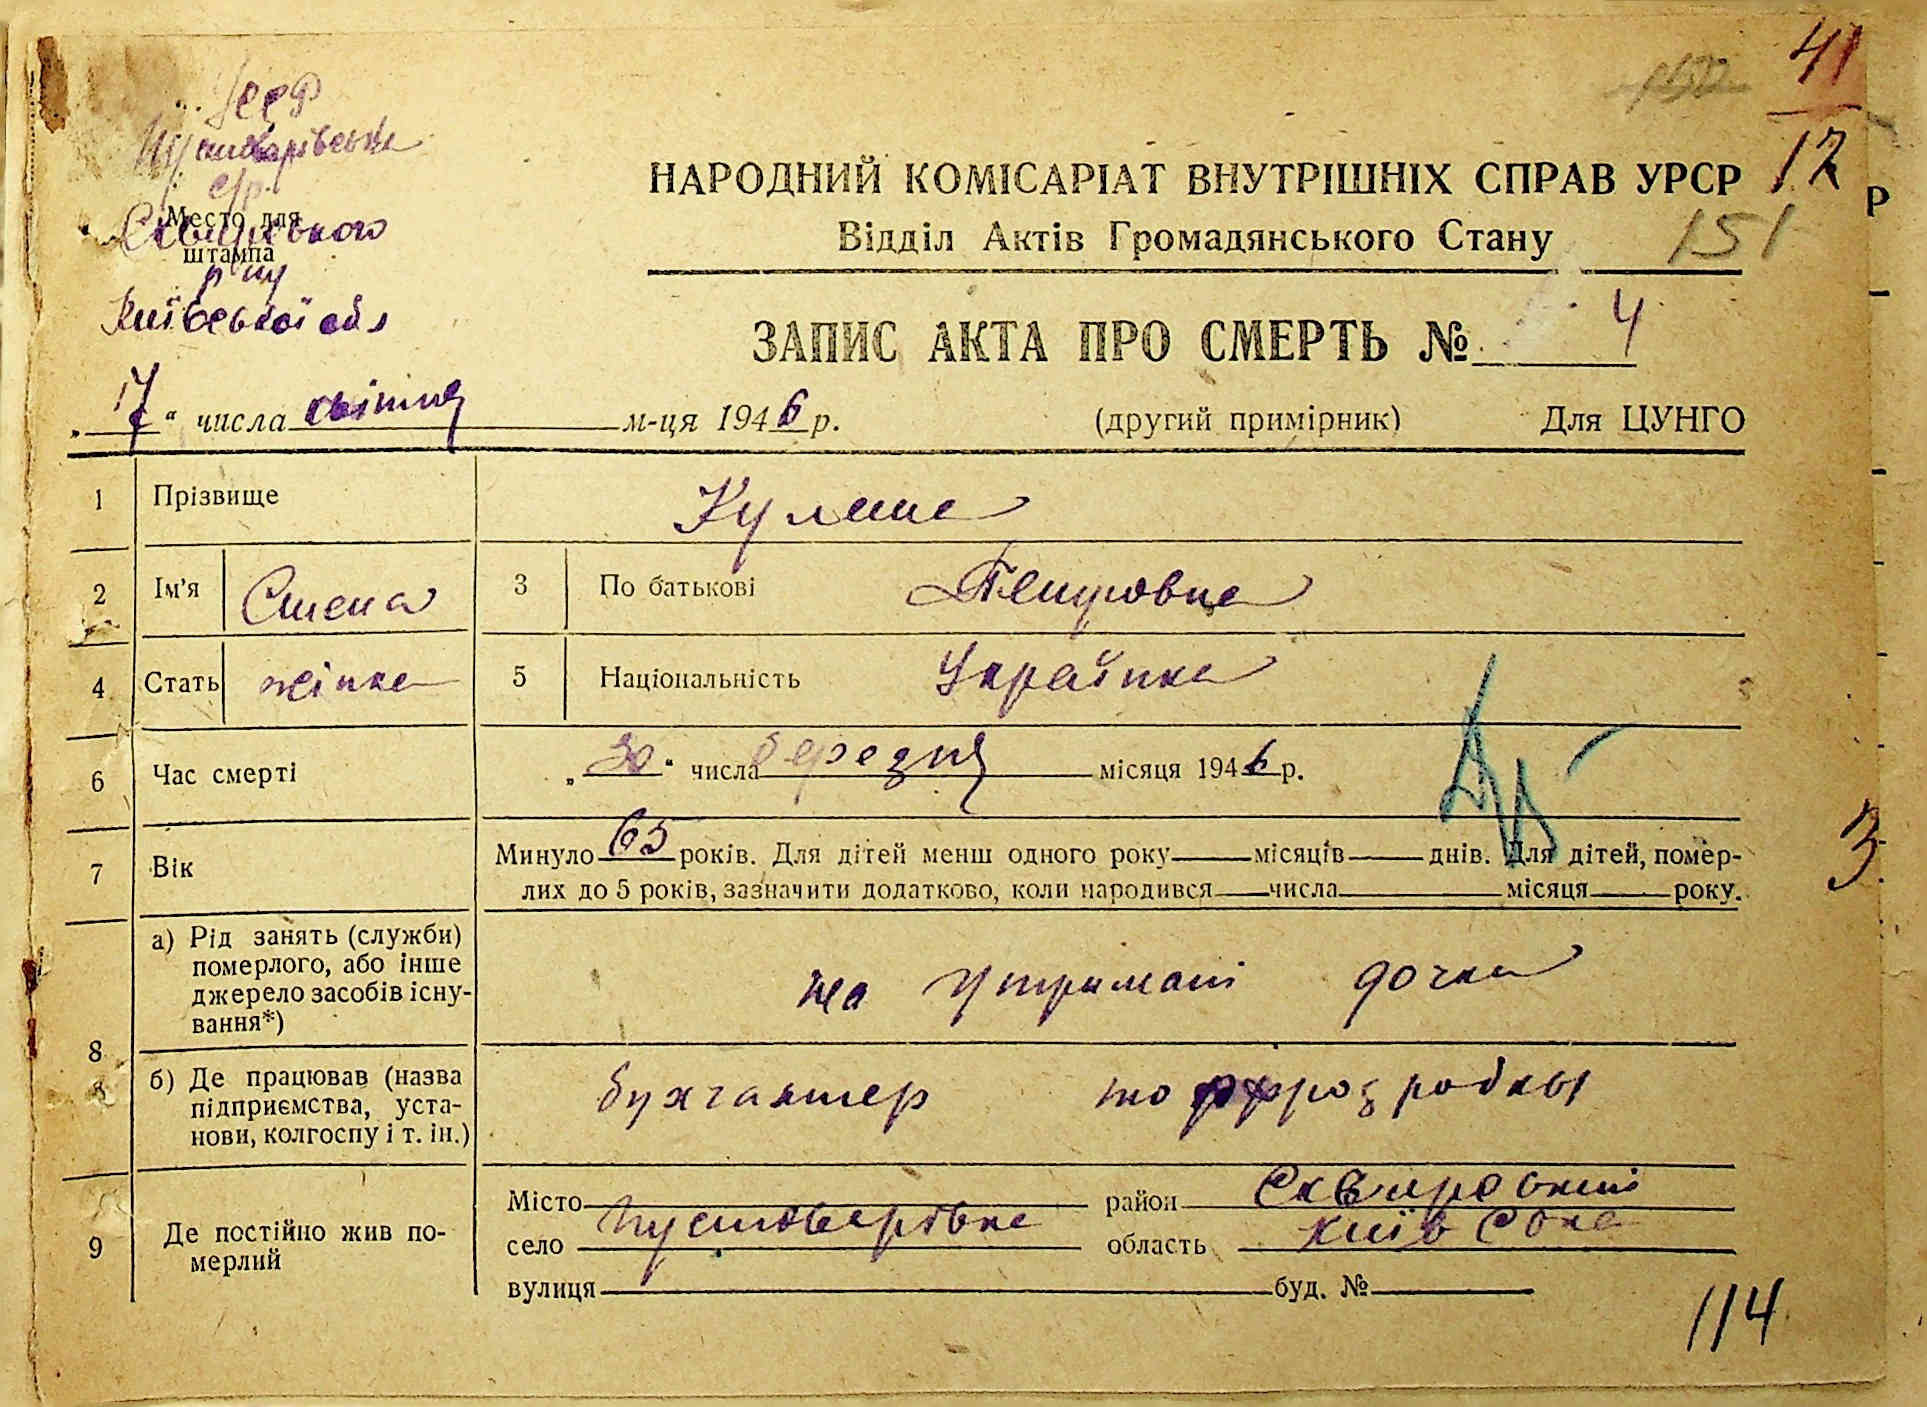 УССР
Пустоварівська
с/р.
Место для
штампа
Сквирського
р-ну
Київської обл
41
12
НАРОДНИЙ КОМІСАРІАТ ВНУТРІШНІХ СПРАВ УРСР
Р
Відділ Актів Громадянського Стану
151
ЗАПИС АКТА ПРО СМЕРТЬ № 4
„17“ числа квітня м-ця 1946 р. (другий примірник) Для ЦУНГО
1 Прізвище
2 Ім'я Олена 3 По батькові Петровна
4 Стать жінка 5 Національність Українка
6 Час смерті „30“ числа березня місяця 1946 р.
7 Вік Минуло 65 років. Для дітей менш одного року — місяців — днів. Для дітей, помер-
лих до 5 років, зазначити додатково, коли народився — числа — місяця — року.
3
8 а) Рід занять (служби)
померлого, або інше
джерело засобів існу-
вання*)
на утримані дочка
б) Де працював (назва
підприємства, уста-
нови, колгоспу і т. ін.)
бухгалтер торфрозробкы
9 Де постійно жив по-
мерлий
Місто район Сквирський
село Пустоварівка область Київська
вулиця буд. №
114